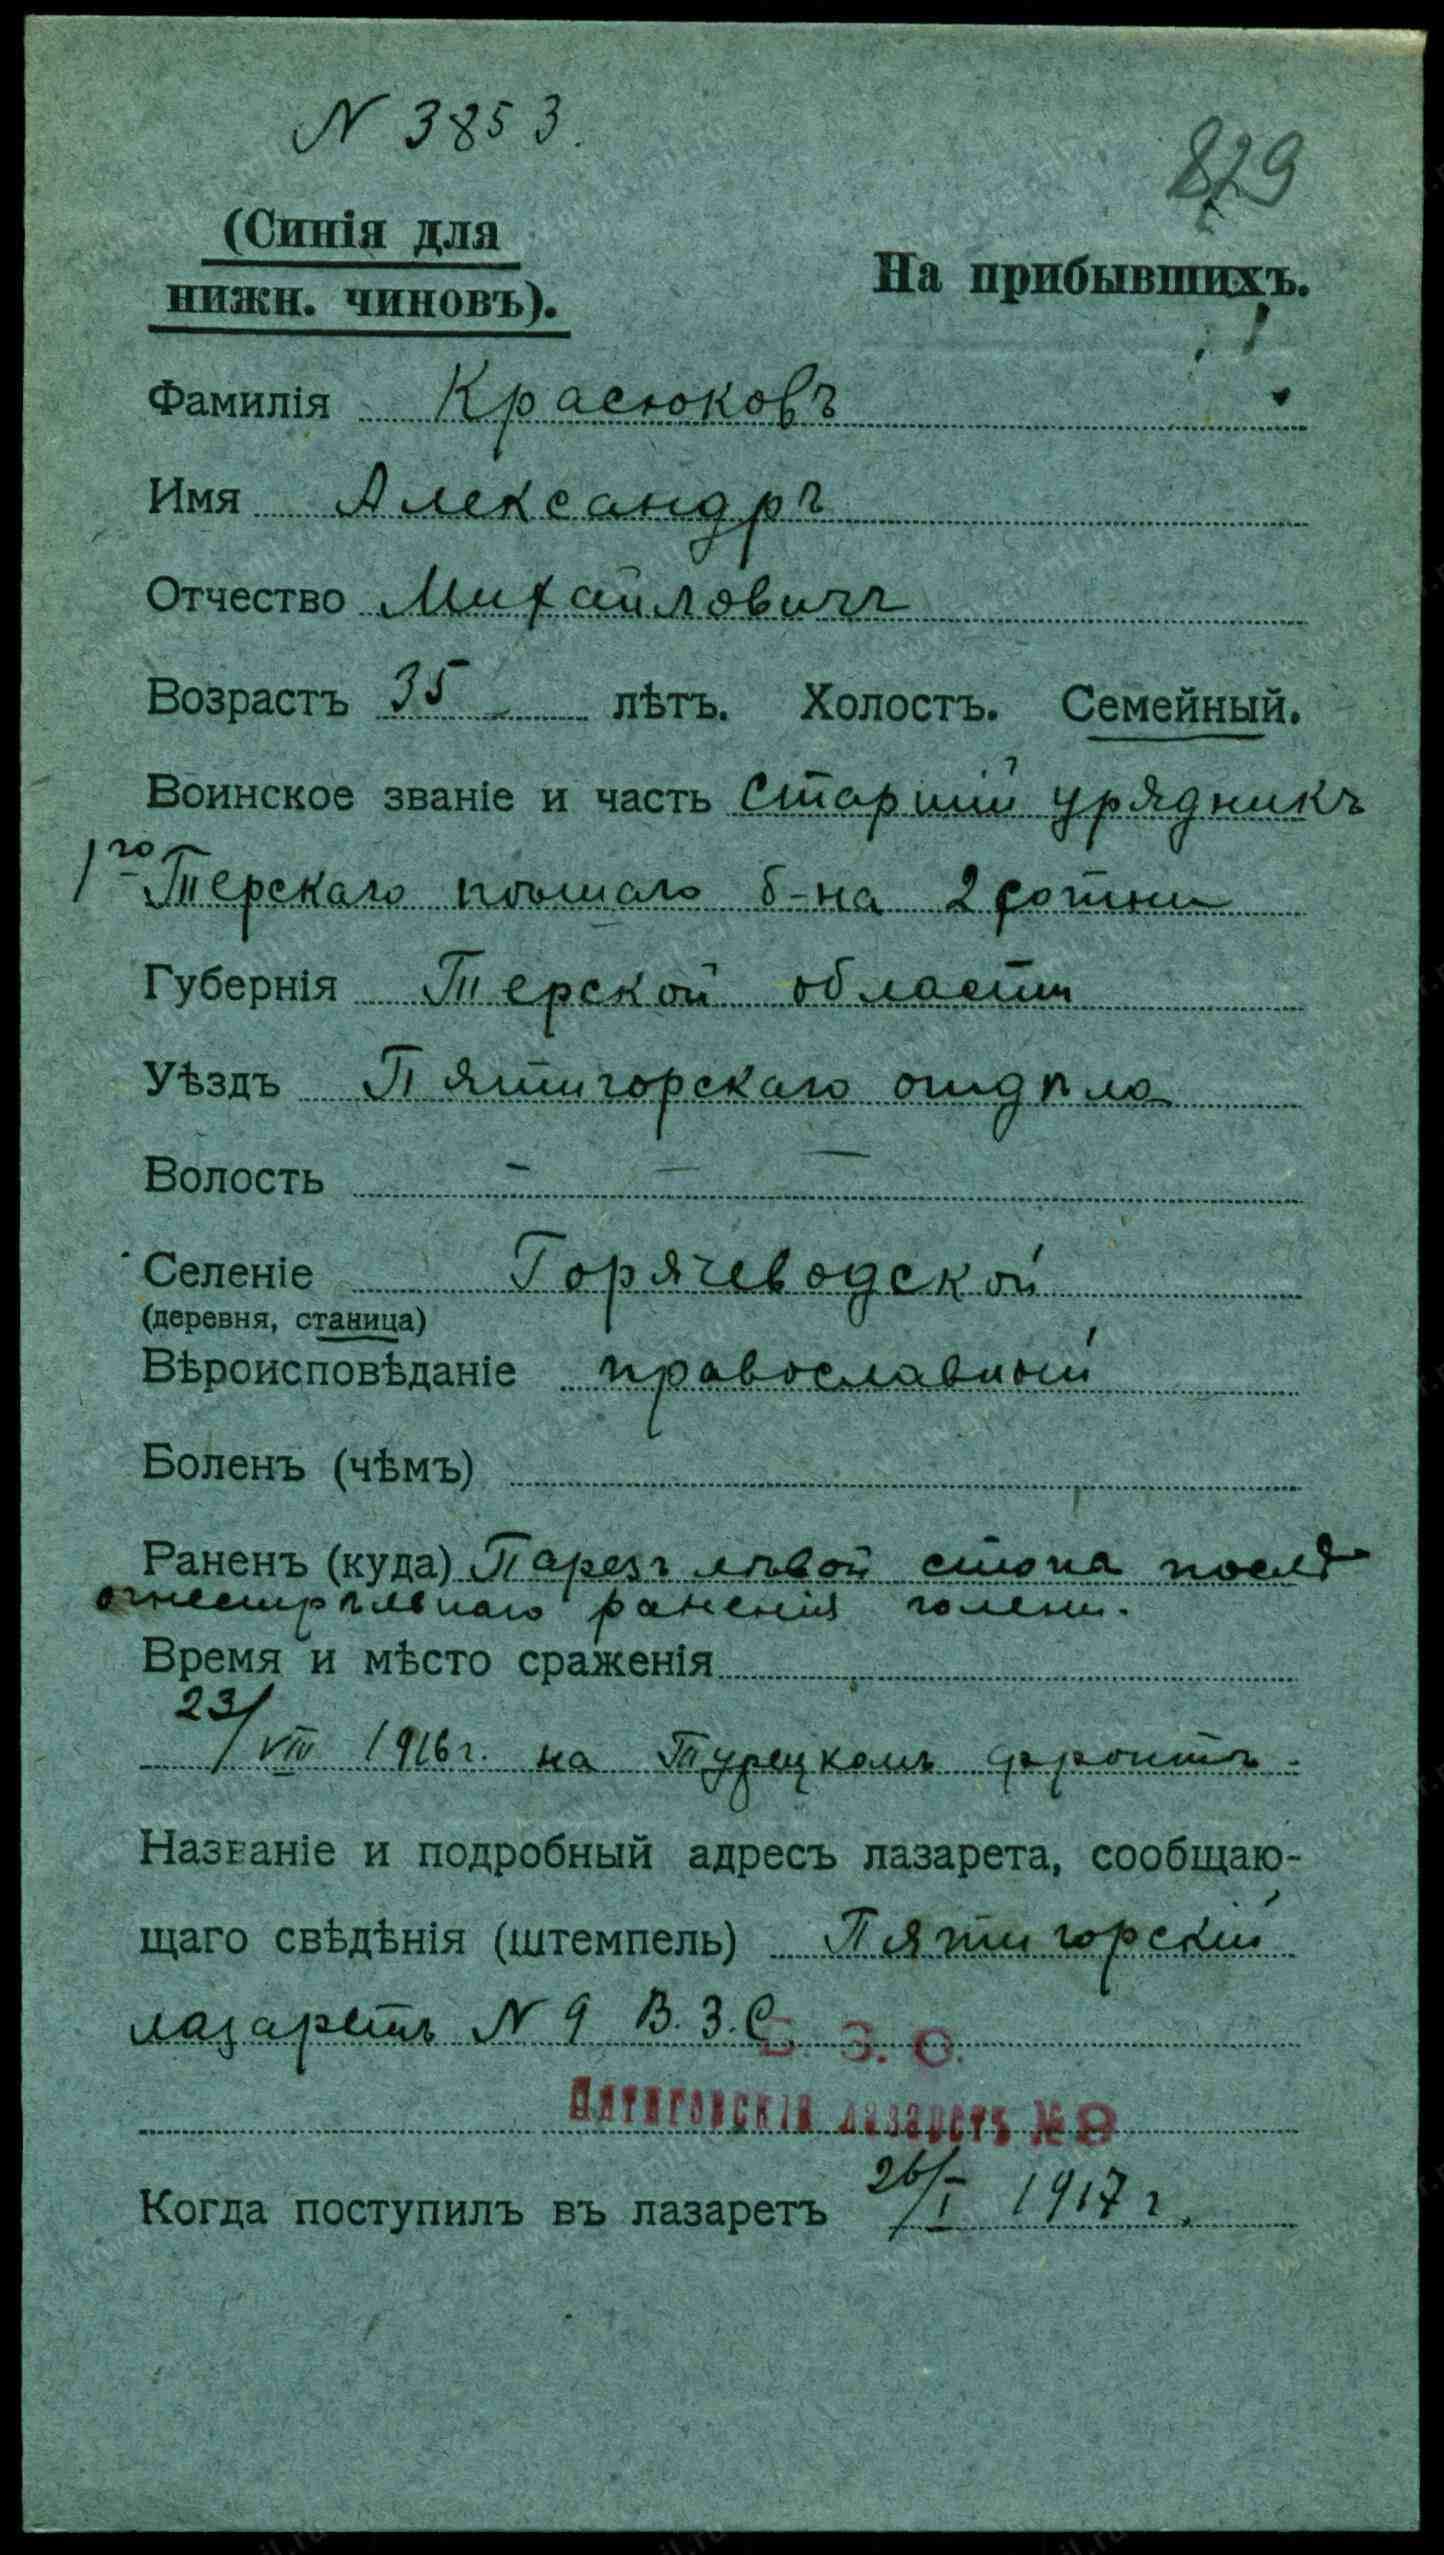 N 3853.
829
(Синія для
нижн. чиновъ).
На прибывшихъ.
Фамилія Красюковъ
Имя Александръ
Отчество Михайловичъ
Возрастъ 35 лѣтъ. Холостъ. Семейный.
Воинское званіе и часть Старшій урядникъ
1го Терскаго пѣшаго б-на 2 сотни
Губернія Терской области
Уѣздъ Пятигорскаго отдѣла
Волость — — —
Селеніе Горячеводской
(деревня, станица)
Вѣроисповѣданіе православный
Боленъ (чѣмъ)
Раненъ (куда) Парезъ лѣвой стопы послѣ
огнестрѣльнаго раненія голени.
Время и мѣсто сраженія
23/VIII 1916 г. на Турецкомъ фронтѣ.
Названіе и подробный адресъ лазарета, сообщаю-
щаго свѣдѣнія (штемпель) Пятигорскій
лазаретъ N 9 В.З.С.
В. З. С.
Пятигорскій лазаретъ № 9
Когда поступилъ въ лазаретъ 26/I 1917 г.